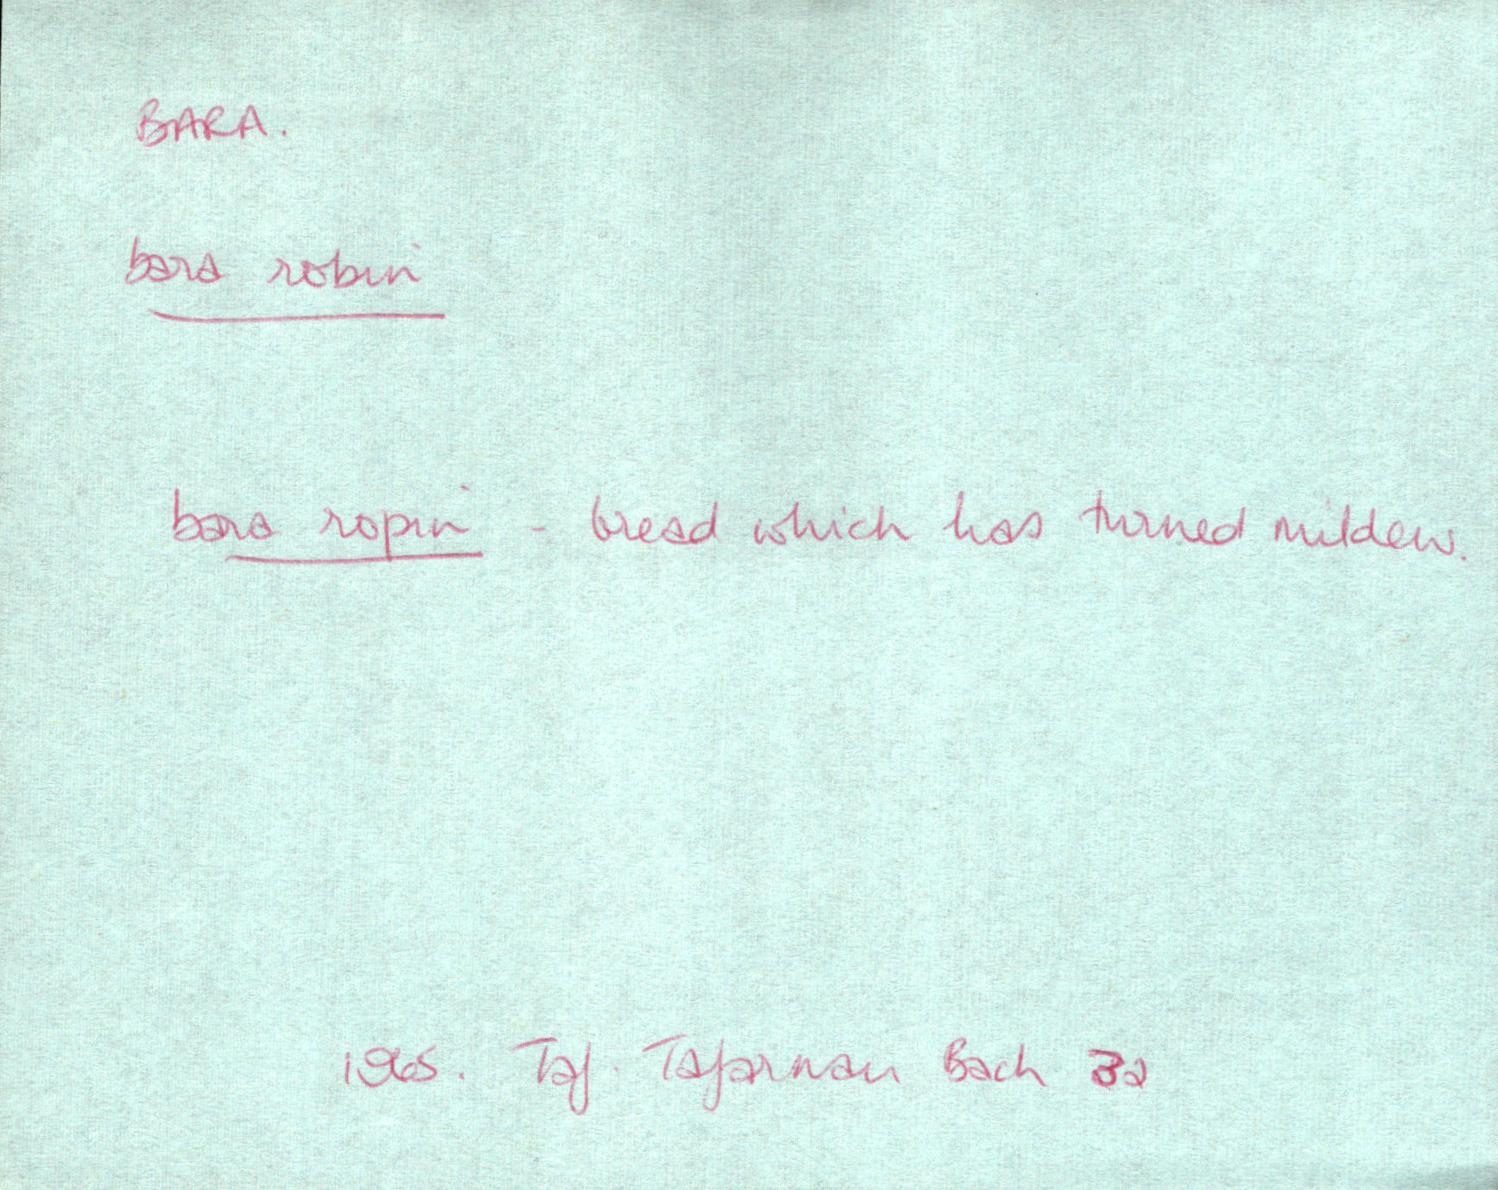 BARA.
bara robin
bara ropin - bread which has turned mildew.
1965. Taf. Tafarnau Bach 32